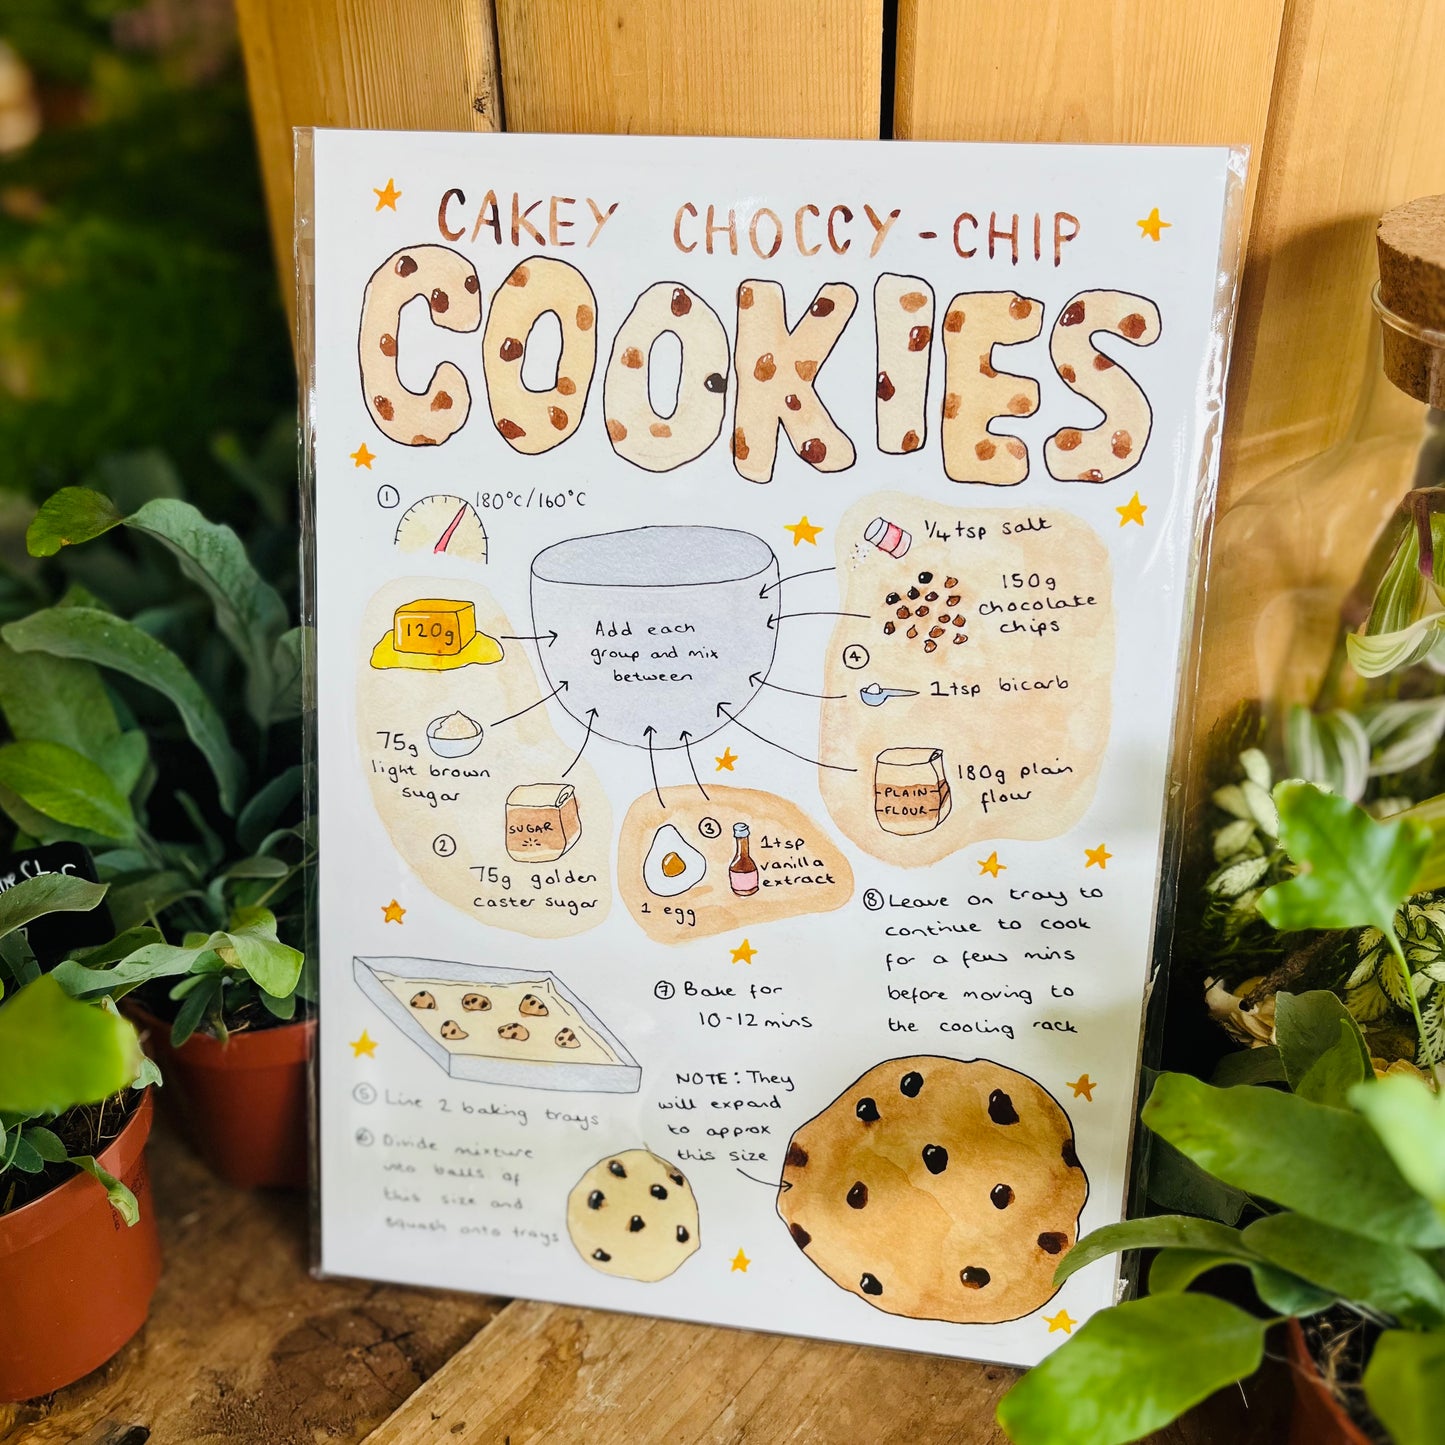 CAKEY CHOCCY-CHIP
COOKIES
1 180°C/160°C
120g
75g
light brown
sugar
SUGAR
2
75g golden
caster sugar
Add each
group and mix
between
3
1 egg
1tsp
vanilla
extract
1/4 tsp salt
150g
chocolate
chips
4
1tsp bicarb
PLAIN
FLOUR
180g plain
flour
5 Line 2 baking trays
6 Divide mixture
into balls of
this size and
squash onto trays
7 Bake for
10-12 mins
NOTE: They
will expand
to approx
this size
8 Leave on tray to
continue to cook
for a few mins
before moving to
the cooling rack